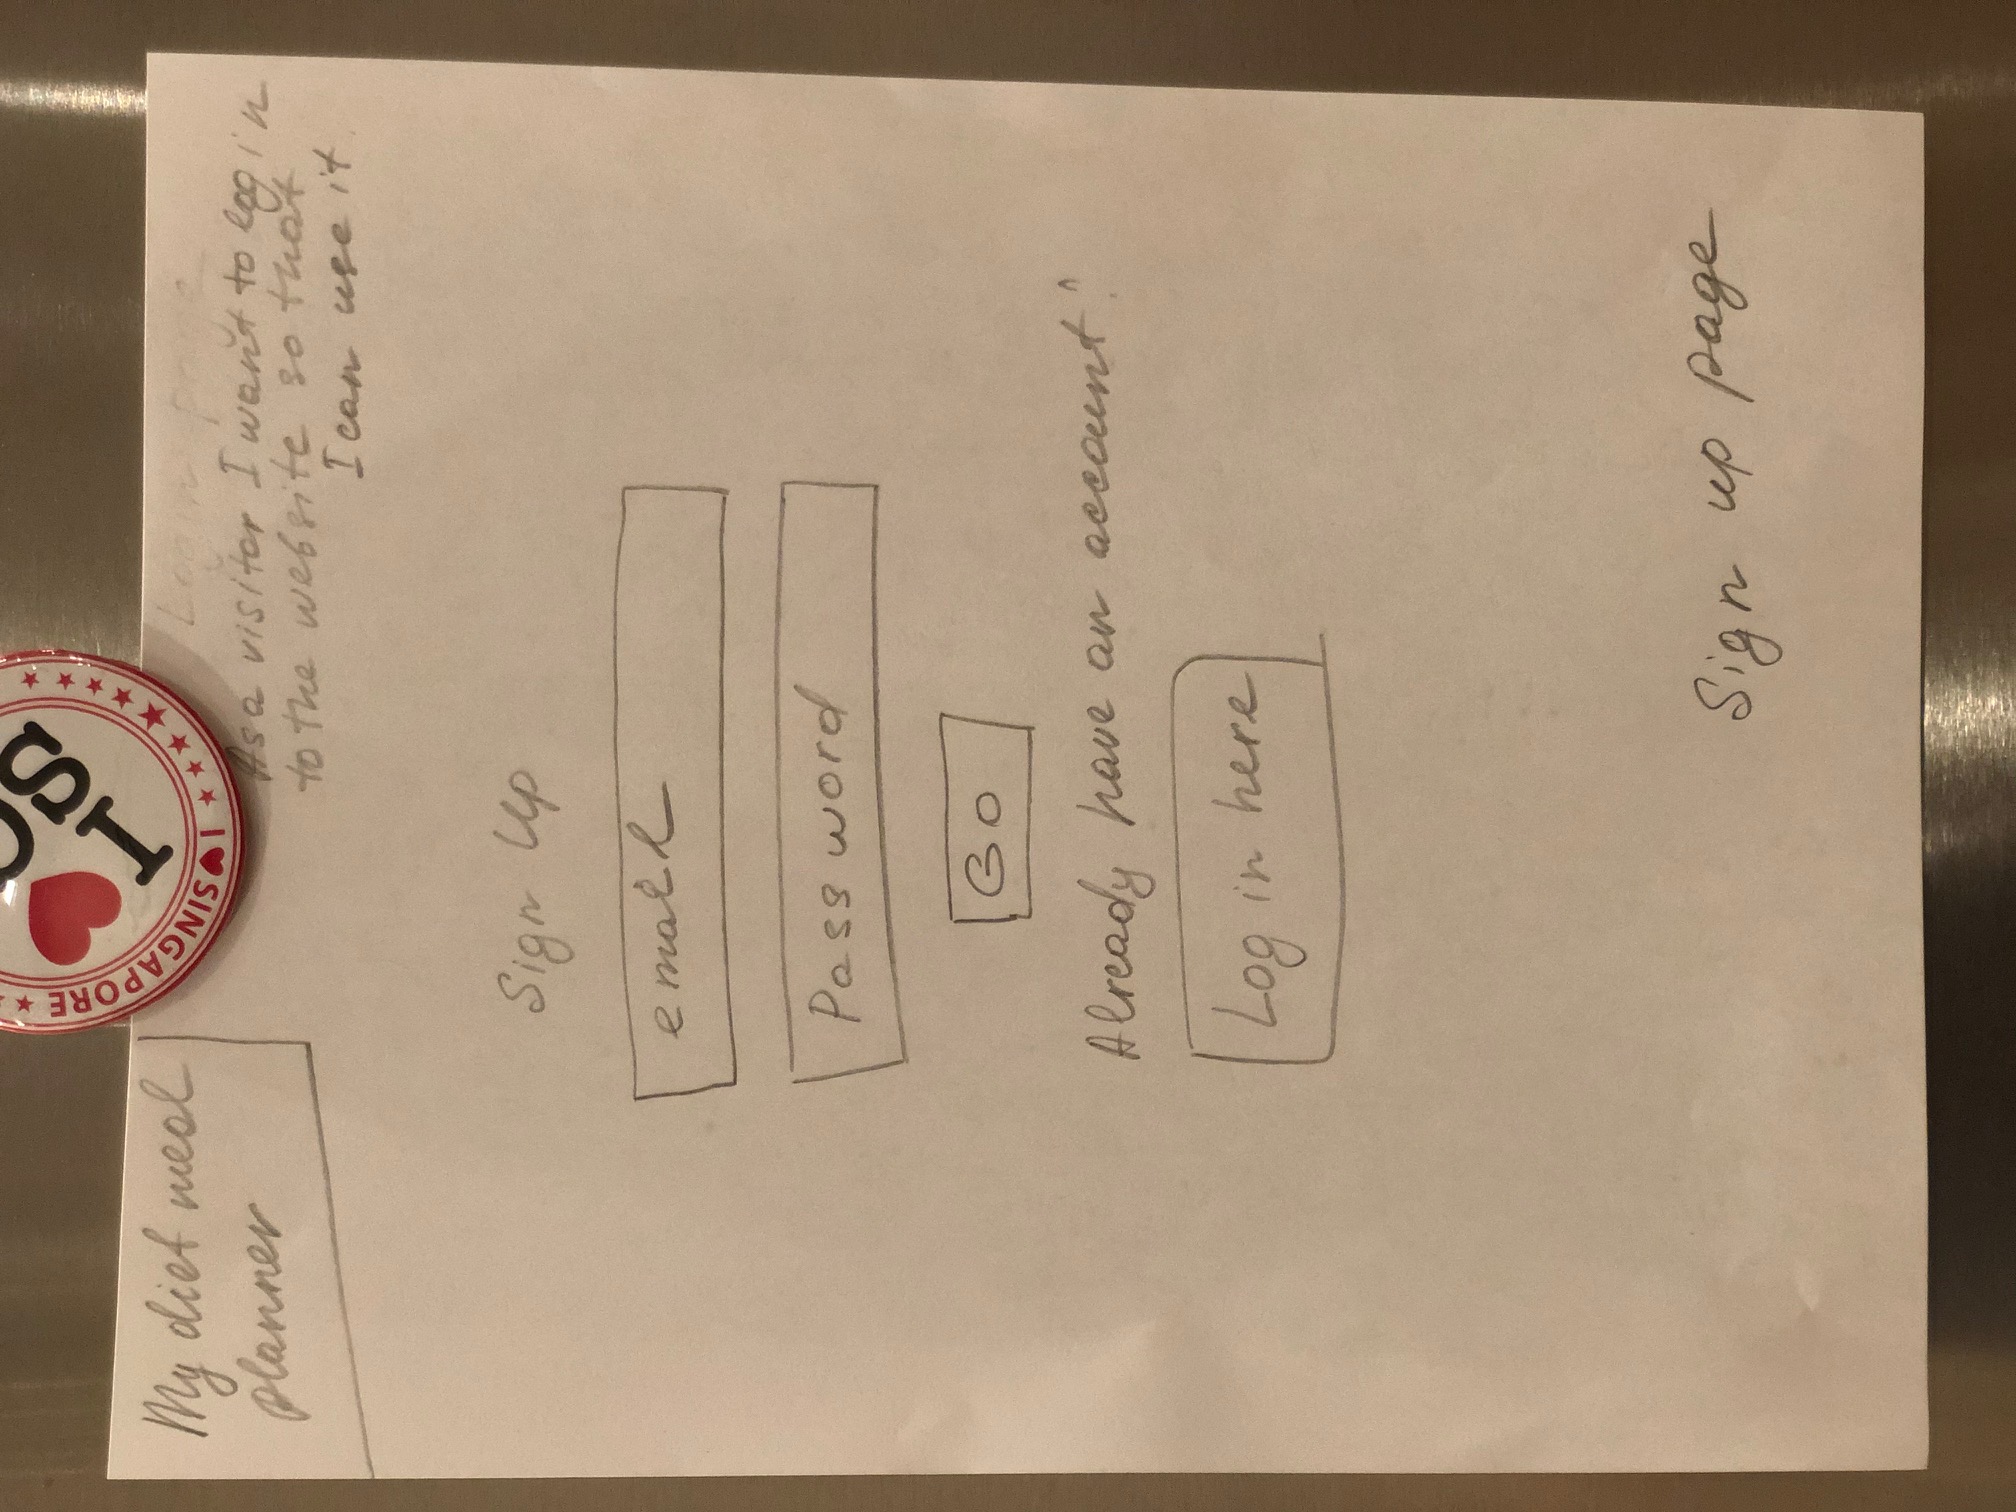 SI
I
I ♥ SINGAPORE
My diet meal
planner
Login page
As a visitor I want to log in
to the website so that
I can use it.
Sign Up
email
Password
Go
Already have an account?
Log in here
Sign up page